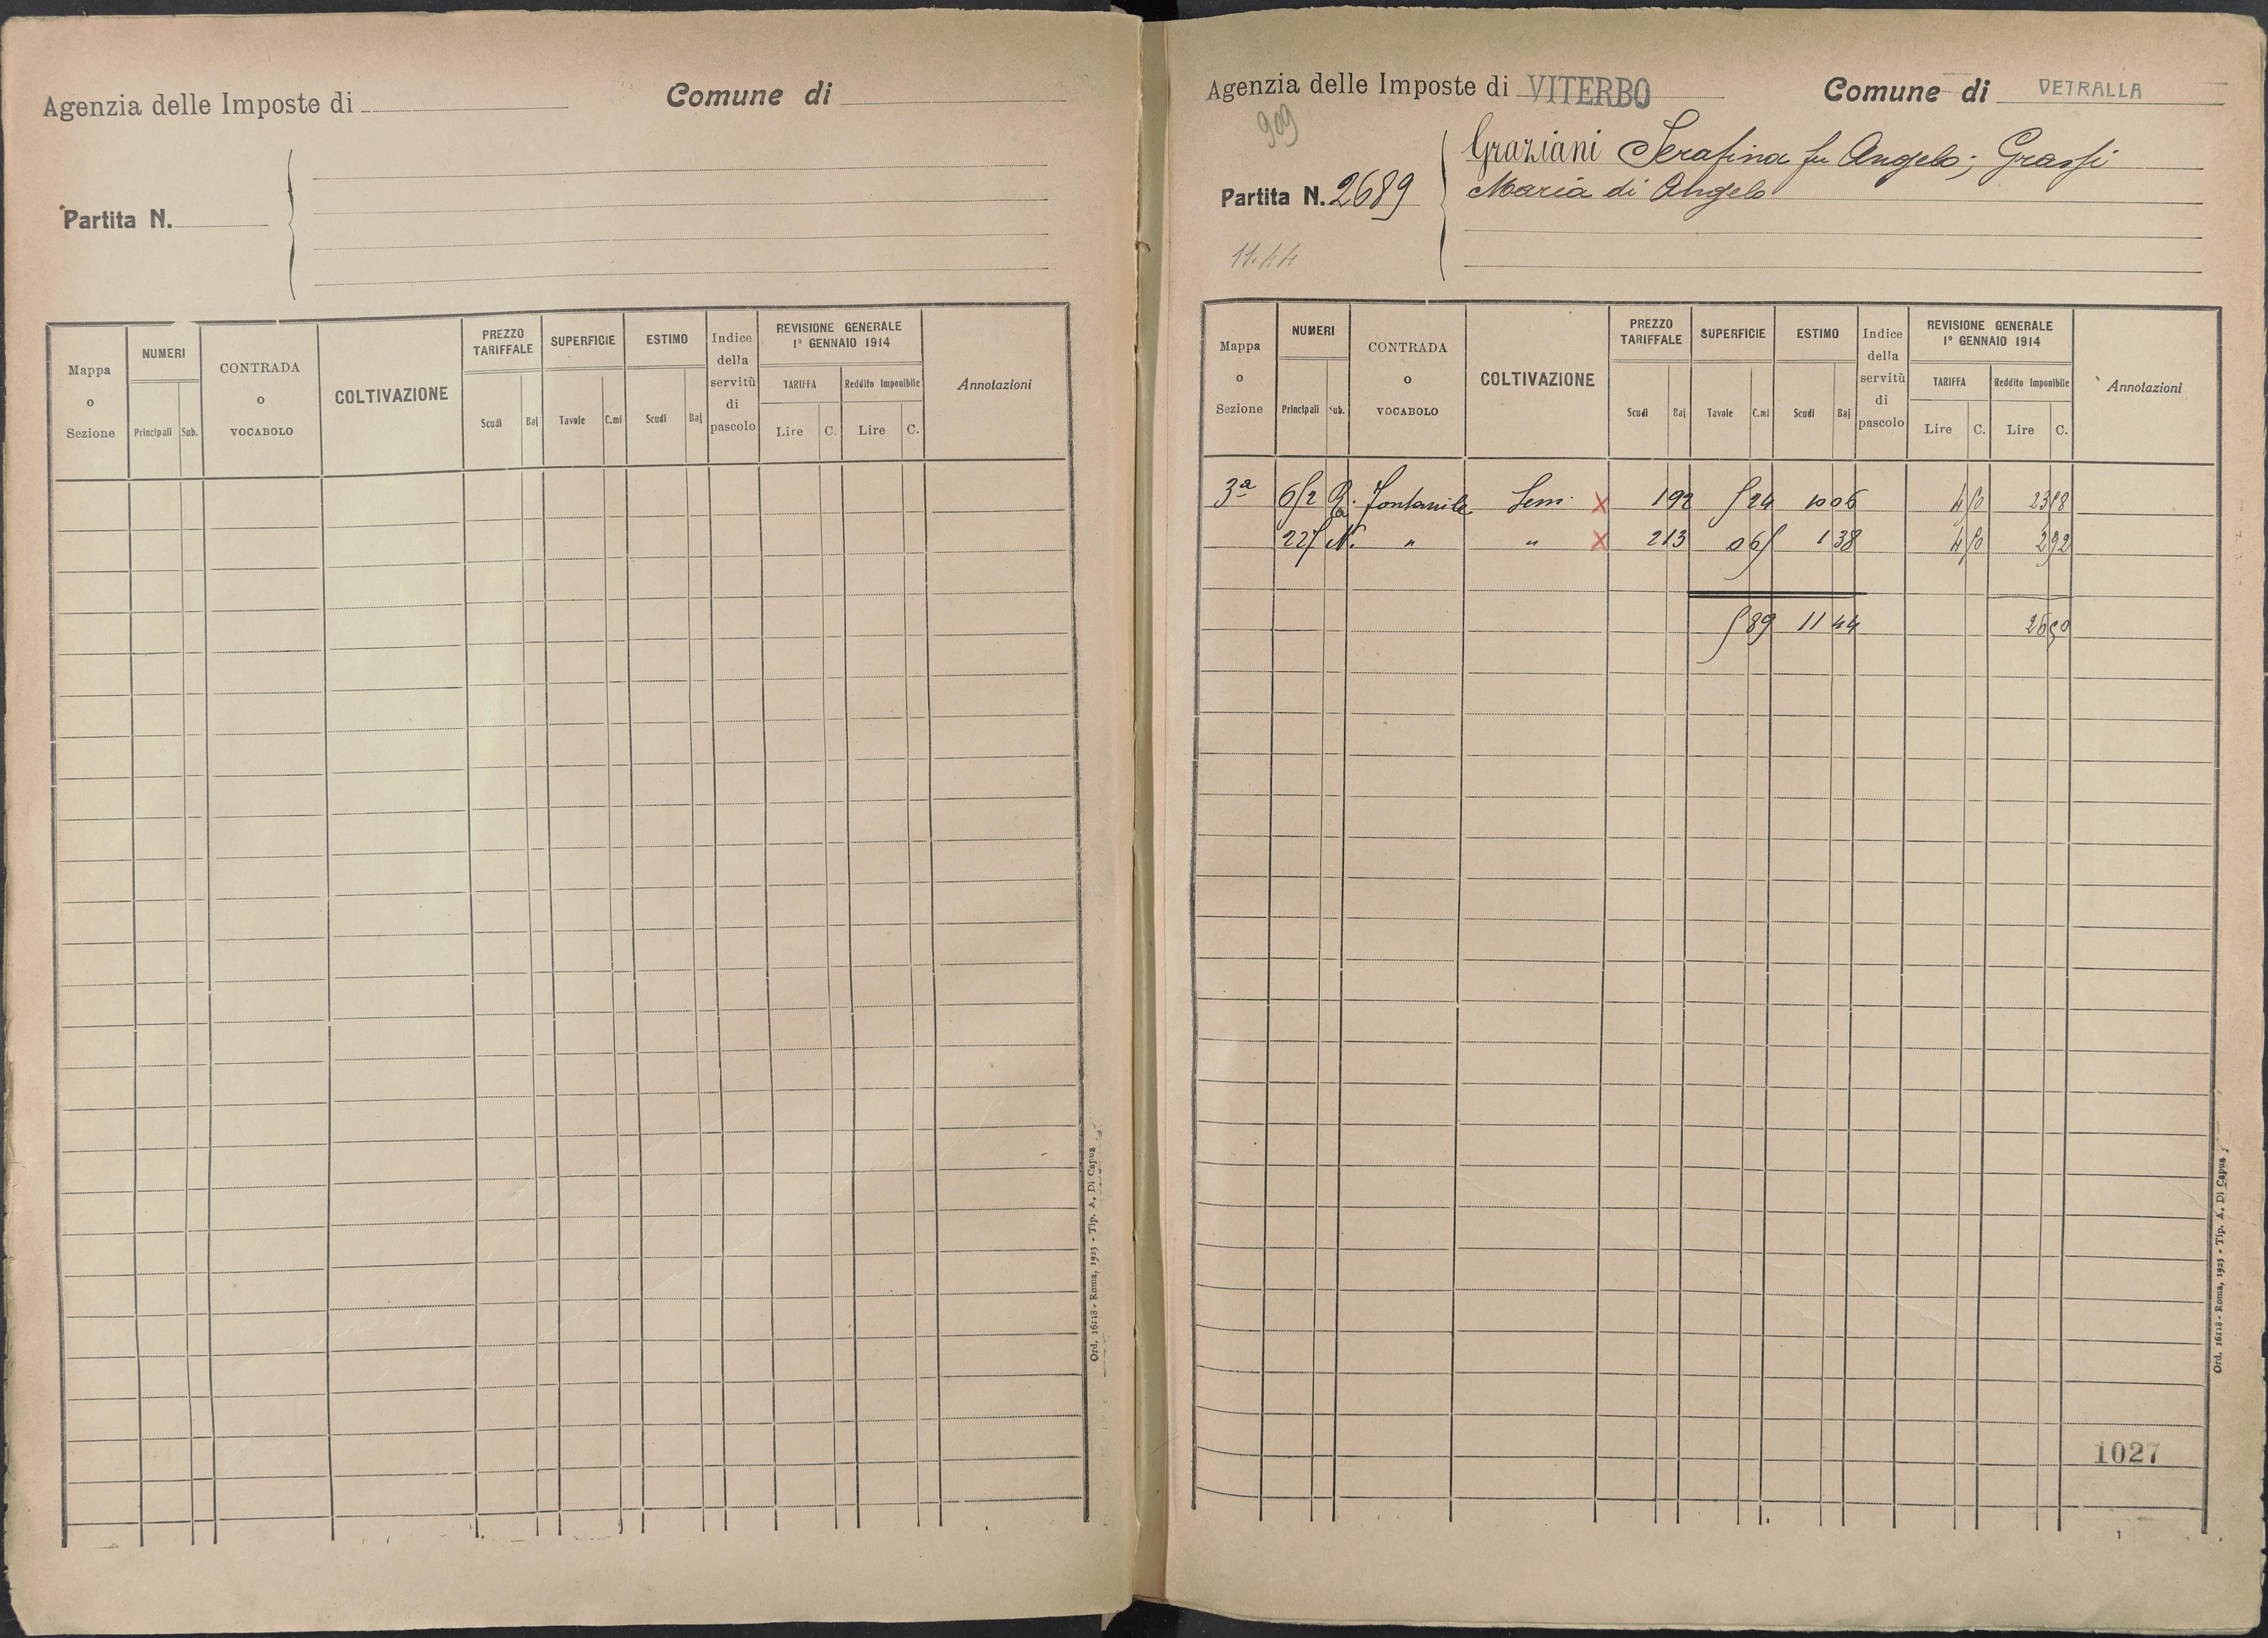 Agenzia delle Imposte di
Comune di
Partita N.
Mappa o Sezione
NUMERI
Principali Sub.
CONTRADA o VOCABOLO
COLTIVAZIONE
PREZZO TARIFFALE
Scudi Baj
SUPERFICIE
Tavole C.mi
ESTIMO
Scudi Baj
Indice della servitù di pascolo
REVISIONE GENERALE
1º GENNAIO 1914
TARIFFA Reddito Imponibile
Lire C. Lire C.
Annotazioni
Ord. 16118 - Roma, 1923 - Tip. A. Di Capua
Agenzia delle Imposte di VITERBO
Comune di VETRALLA
909
Partita N. 2689
Graziani Serafina fu Angelo; Grassi
Maria di Angelo
11.44
Mappa o Sezione
NUMERI
Principali Sub.
CONTRADA o VOCABOLO
COLTIVAZIONE
PREZZO TARIFFALE
Scudi Baj
SUPERFICIE
Tavole C.mi
ESTIMO
Scudi Baj
Indice della servitù di pascolo
REVISIONE GENERALE
1º GENNAIO 1914
TARIFFA Reddito Imponibile
Lire C. Lire C.
Annotazioni
3ª 652 Fontanile Sem. X 1 92 5 24 10 06 4 50 23 58
225 N. " " X 2 13 0 65 1 38 4 50 2 92
5 89 11 44 26 50
1027
Ord. 16118 - Roma, 1923 - Tip. A. Di Capua